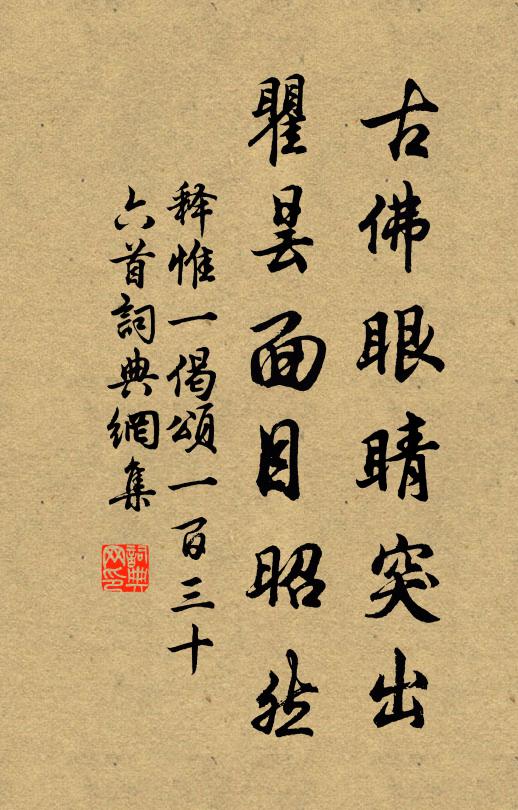 古佛眼睛突出
瞿昙面目昭然
释惟一偈颂一百三十
六首詞典網集
詞典
网印